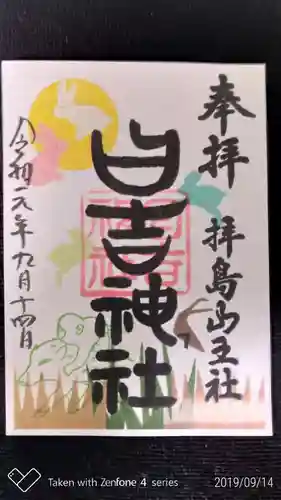 奉拝
拝島山王社
日吉神社
令和元年九月十四日
日吉神社
Taken with Zenfone 4 series
2019/09/14